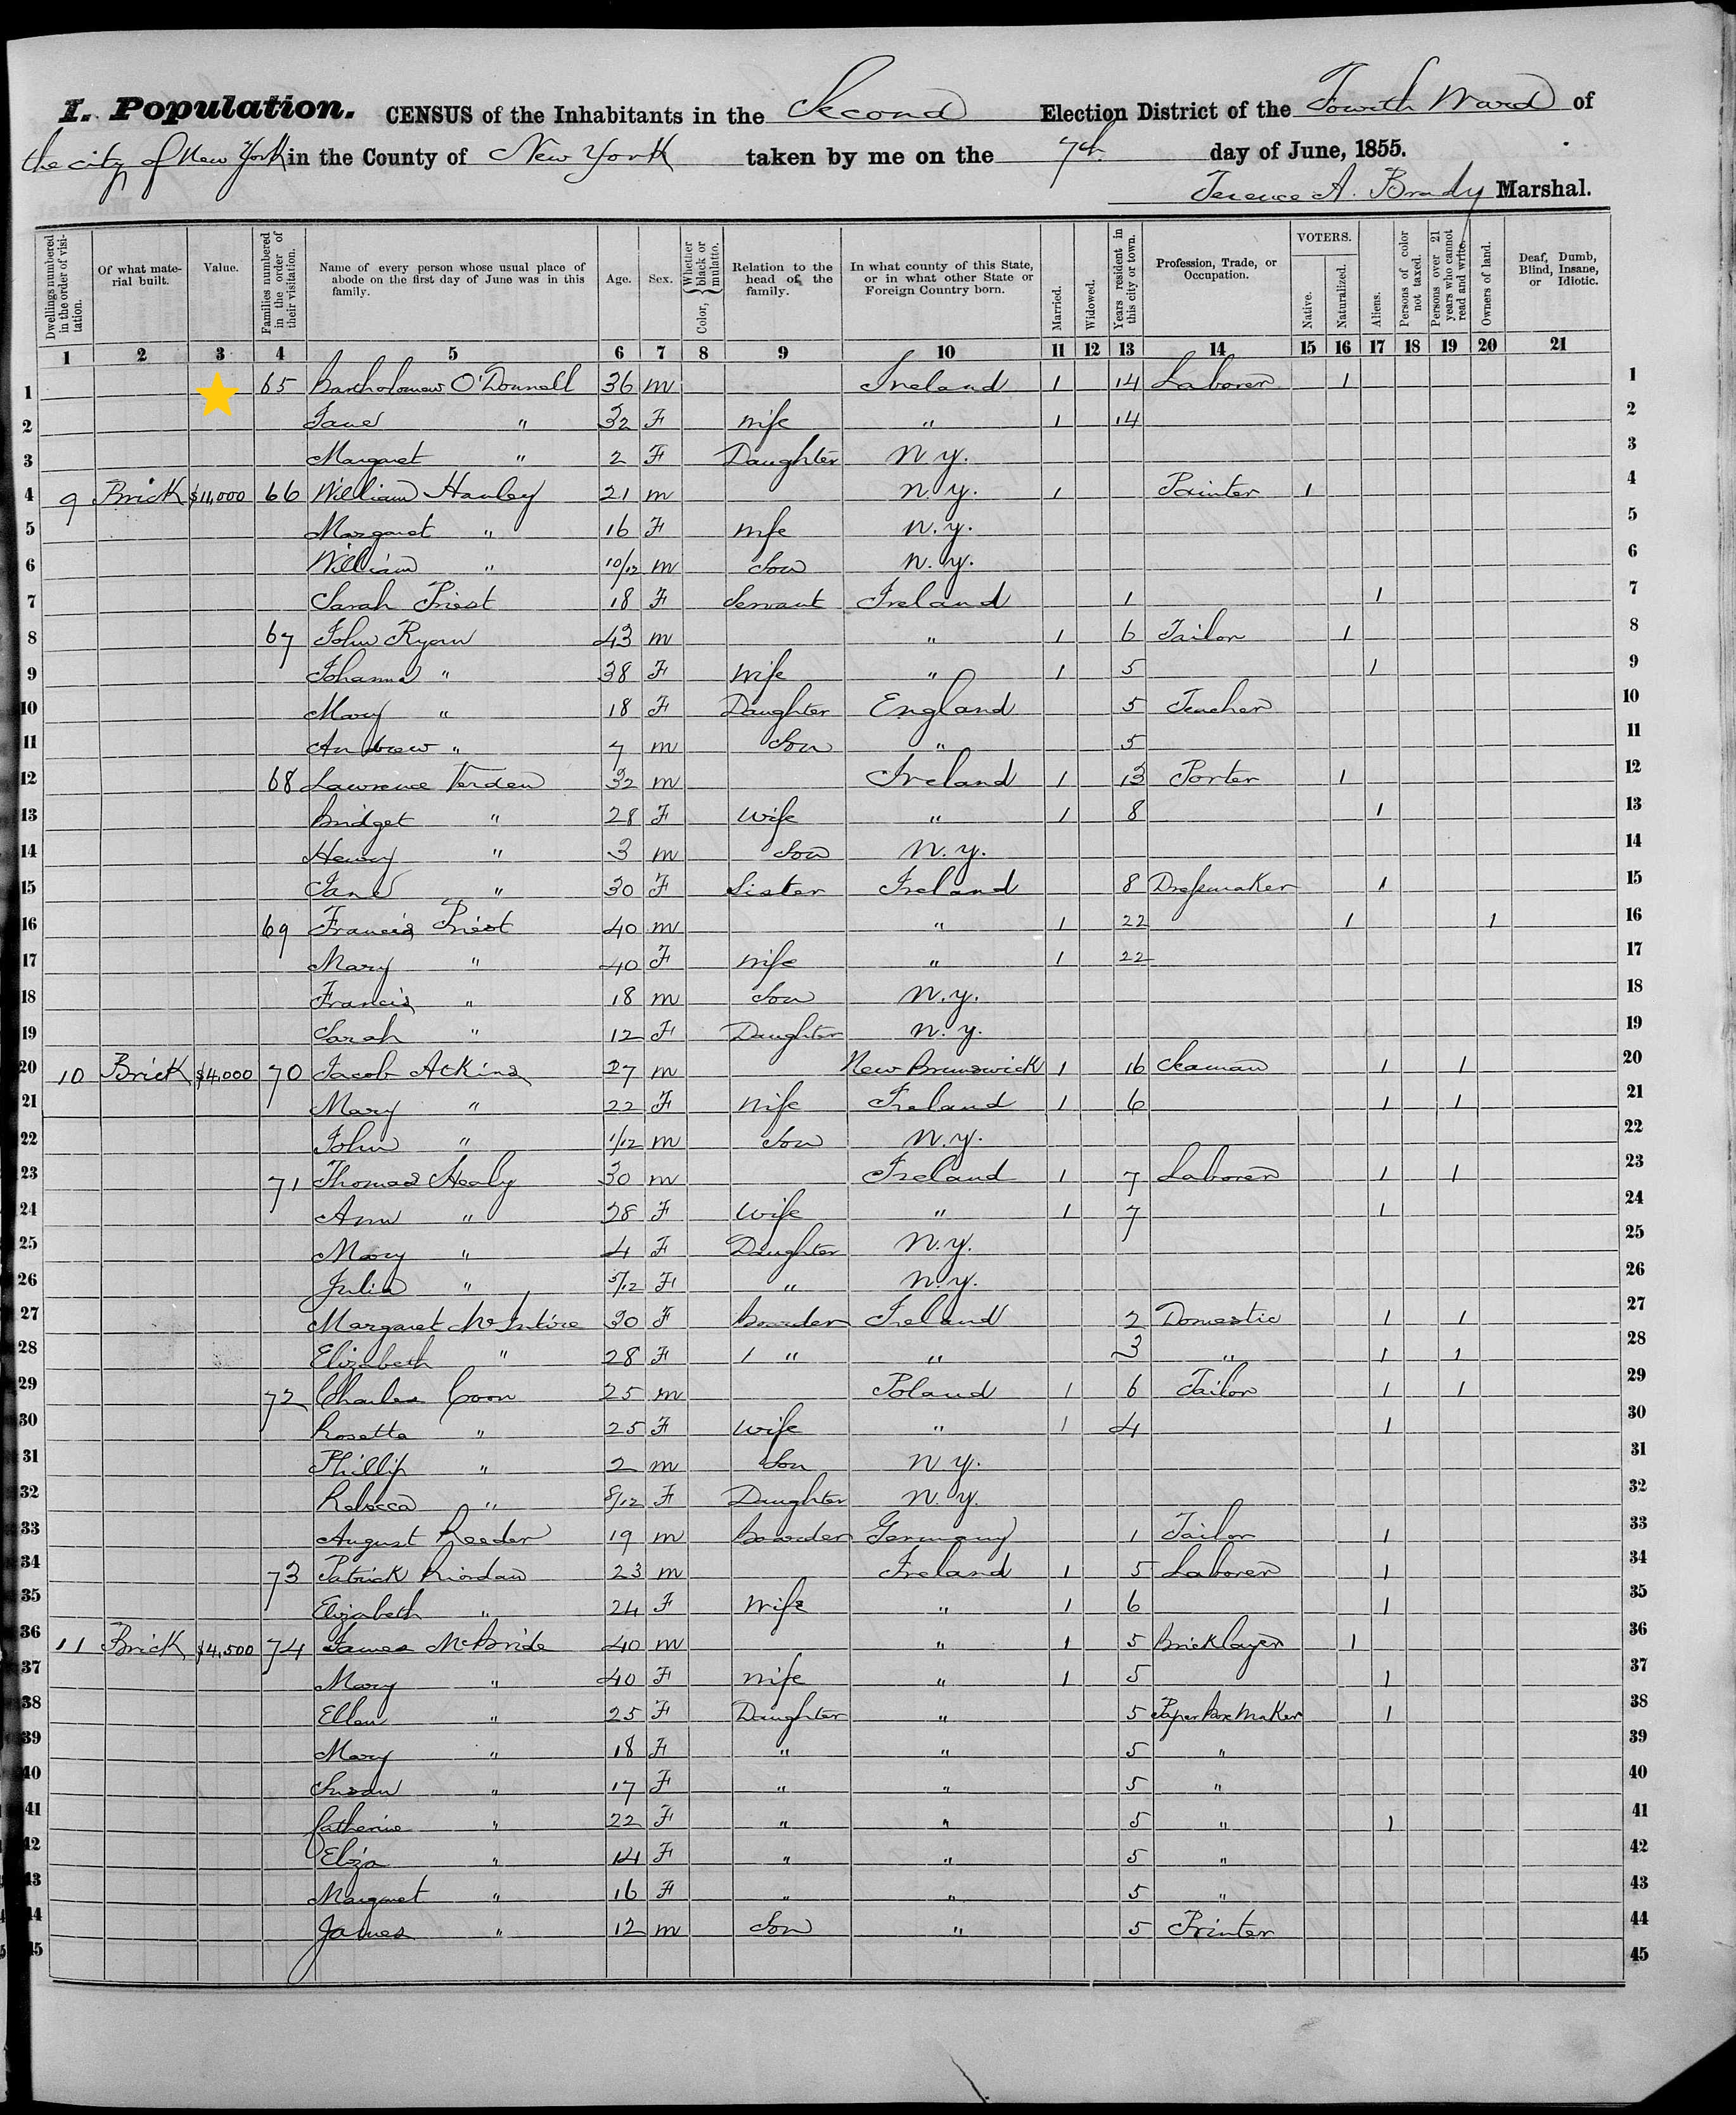 I. Population. CENSUS of the Inhabitants in the Second Election District of the Fourth Ward of
the city of New York in the County of New York taken by me on the 7th day of June, 1855.
Terence A. Brady Marshal.
Dwellings numbered in the order of visitation. Of what material built. Value. Families numbered in the order of their visitation. Name of every person whose usual place of abode on the first day of June was in this family. Age. Sex. Color, Whether black or mulatto. Relation to the head of the family. In what county of this State, or in what other State or Foreign Country born. Married. Widowed. Years resident in this city or town. Profession, Trade, or Occupation. VOTERS. Native. Naturalized. Aliens. Persons of color not taxed. Persons over 21 years who cannot read and write. Owners of land. Deaf, Dumb, Blind, Insane, or Idiotic.
1 2 3 4 5 6 7 8 9 10 11 12 13 14 15 16 17 18 19 20 21
1 65 Bartholomew O'Donnell 36 m Ireland 1 14 Laborer 1 1
2 Jane " 32 F wife " 1 14 2
3 Margaret " 2 F Daughter N y. 3
4 9 Brick $11,000 66 William Hanley 21 m N y. 1 Painter 1 4
5 Margaret " 16 F wife N. y. 5
6 William " 10/12 m Son N. y. 6
7 Sarah Priest 18 F Servant Ireland 1 1 7
8 67 John Ryan 43 m " 1 6 Tailor 1 8
9 Johanna " 38 F Wife " 1 5 1 9
10 Mary " 18 F Daughter England 5 Teacher 10
11 Andrew " 7 m Son " 5 11
12 68 Lawrence Verden 32 m Ireland 1 13 Porter 1 12
13 Bridget " 28 F Wife " 1 8 1 13
14 Henry " 3 m Son N. y. 14
15 Jane " 30 F Sister Ireland 8 Dressmaker 1 15
16 69 Francis Priest 40 m " 1 22 1 1 16
17 Mary " 40 F wife " 1 22 17
18 Francis " 18 m Son N. y. 18
19 Sarah " 12 F Daughter N. y. 19
20 10 Brick $4,000 70 Jacob Atkins 27 m New Brunswick 1 16 Seaman 1 1 20
21 Mary " 22 F wife Ireland 1 6 1 1 21
22 John " 1/12 m Son N. y. 22
23 71 Thomas Healy 30 m Ireland 1 7 Laborer 1 1 23
24 Ann " 28 F Wife " 1 7 1 24
25 Mary " 4 F Daughter N. y. 25
26 Julia " 5/12 F " N. y. 26
27 Margaret McIntire 30 F Boarder Ireland 2 Domestic 1 1 27
28 Elizabeth " 28 F " " 3 " 1 1 28
29 72 Charles Coon 25 m Poland 1 6 Tailor 1 1 29
30 Rosetta " 25 F Wife " 1 4 1 30
31 Phillip " 2 m Son N y. 31
32 Rebecca " 8/12 F Daughter N. y. 32
33 August Reeder 19 m Boarder Germany 1 Tailor 1 33
34 73 Patrick Riordan 23 m Ireland 1 5 Laborer 1 34
35 Elizabeth " 24 F Wife " 1 6 1 35
36 11 Brick $4,500 74 James McBride 40 m " 1 5 Bricklayer 1 36
37 Mary " 40 F wife " 1 5 1 37
38 Ellen " 25 F Daughter " 5 Paper Box Maker 1 38
39 Mary " 18 F " " 5 " 39
40 Susan " 17 F " " 5 " 40
41 Catherine " 22 F " " 5 " 1 41
42 Eliza " 14 F " " 5 " 42
43 Margaret " 16 F " " 5 " 43
44 James " 12 m Son " 5 Printer 44
45 45